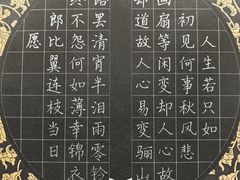 人生若只如
初见何事秋风悲
画扇等闲变却故人心
却道故人心易变骊山
语罢清宵半泪雨零铃
终不怨何如薄幸锦衣
郎比翼连枝当日
愿